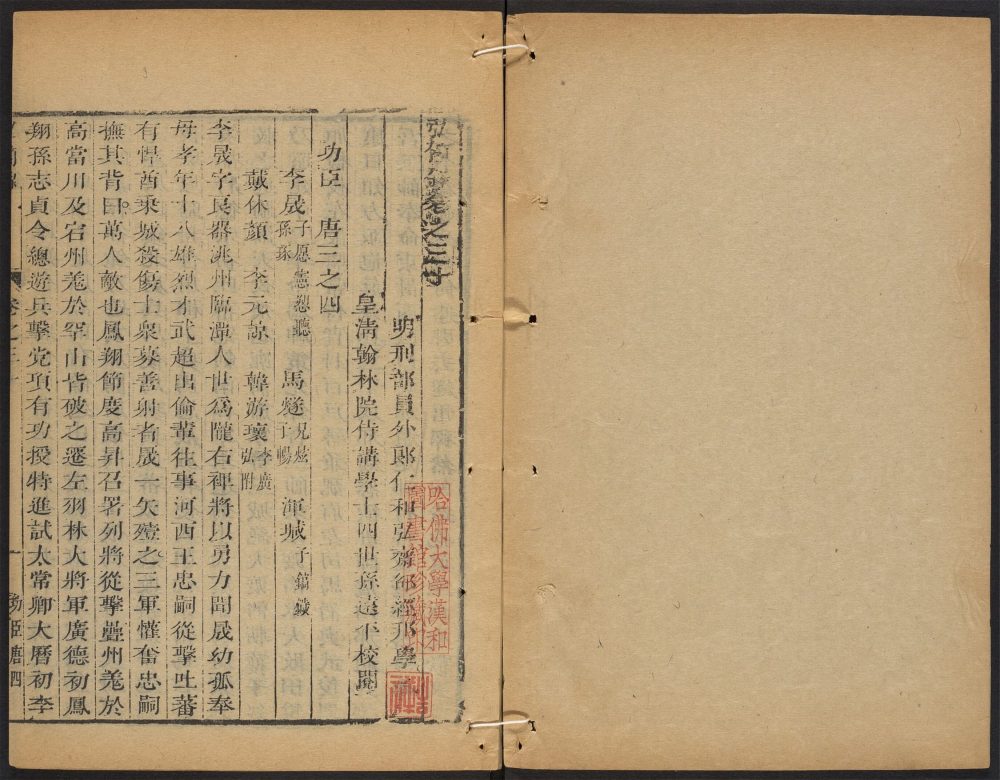 弘簡錄卷之三十
明刑部員外郎仁和弘齋邵經邦學
皇清翰林院侍講學士四世孫遠平校閱
功臣 唐三之四
李晟子愿憲愬聽孫琢 馬燧兄炫子暢 渾瑊子鎬鐬
戴休顏 李元諒 韓游瓌李廣弘附
李晟字良器洮州臨潭人世爲隴右裨將以勇力聞晟幼孤奉
母孝年十八雄烈才武超出倫輩往事河西王忠嗣從擊吐蕃
有悍酋乘城殺傷士衆募善射者晟一矢殪之三軍懽奮忠嗣
撫其背曰萬人敵也鳳翔節度高昇召署列將從擊疊州羌於
高當川及宕州羌於罕山皆破之遷左羽林大將軍廣德初鳳
翔孫志貞令總遊兵擊党項有功授特進試太常卿大曆初李
卷之三十 一 功臣唐四
哈佛大學漢和
圖書館珍藏印